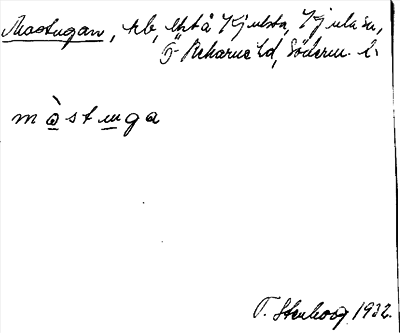 Mostugan, tib, Ekta Kjulsta, Kjula sn,
Ö Rekarne hd, Söderm. l.
måstuga
T. Stenhoog 1932.